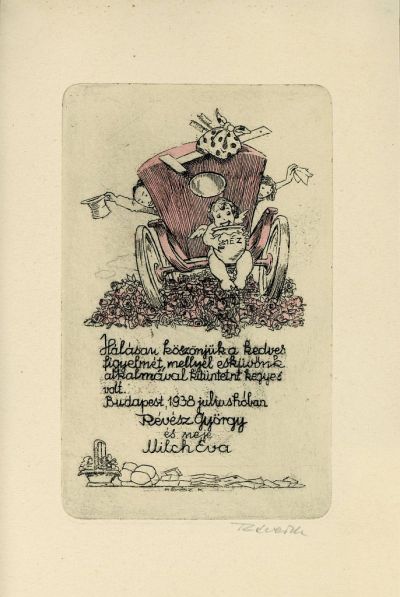 MÉZ
Hálásan köszönjük a kedves
figyelmét, mellyel esküvőnk
alkalmával kitüntetni kegyes
volt.
Budapest 1938 július hóban
Révész György
és neje
Milch Éva
RÉVÉSZ K.